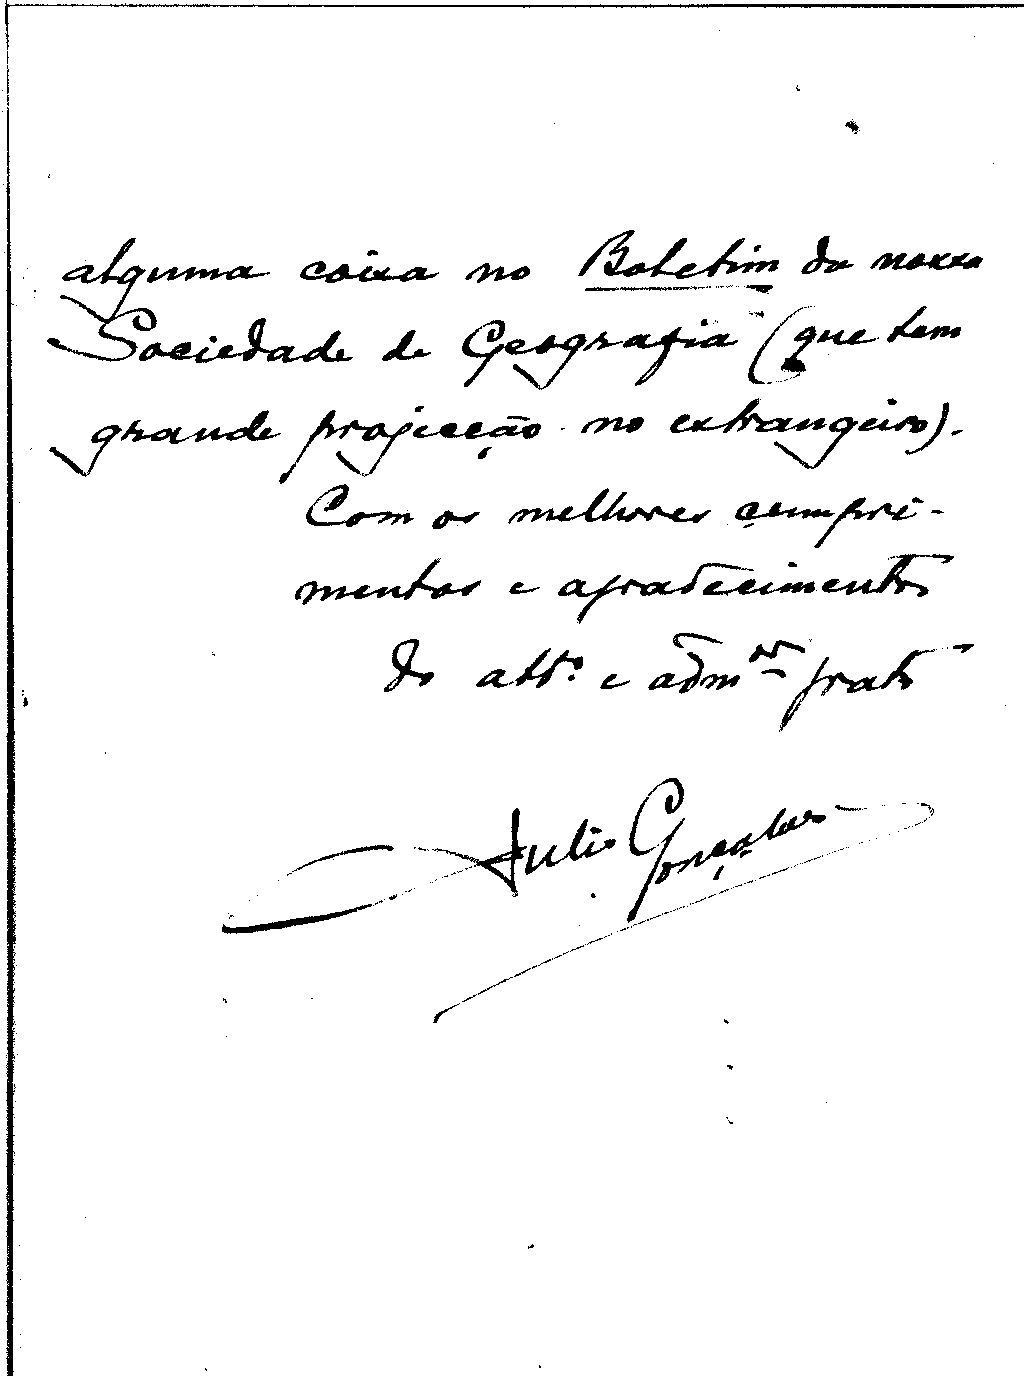 alguma coisa no Boletim da nossa
Sociedade de Geografia (que tem
grande projecção no extrangeiro).
Com os melhores cumpri-
mentos e agradecimentos
do attº. e admor grato
Julio Gonçalves